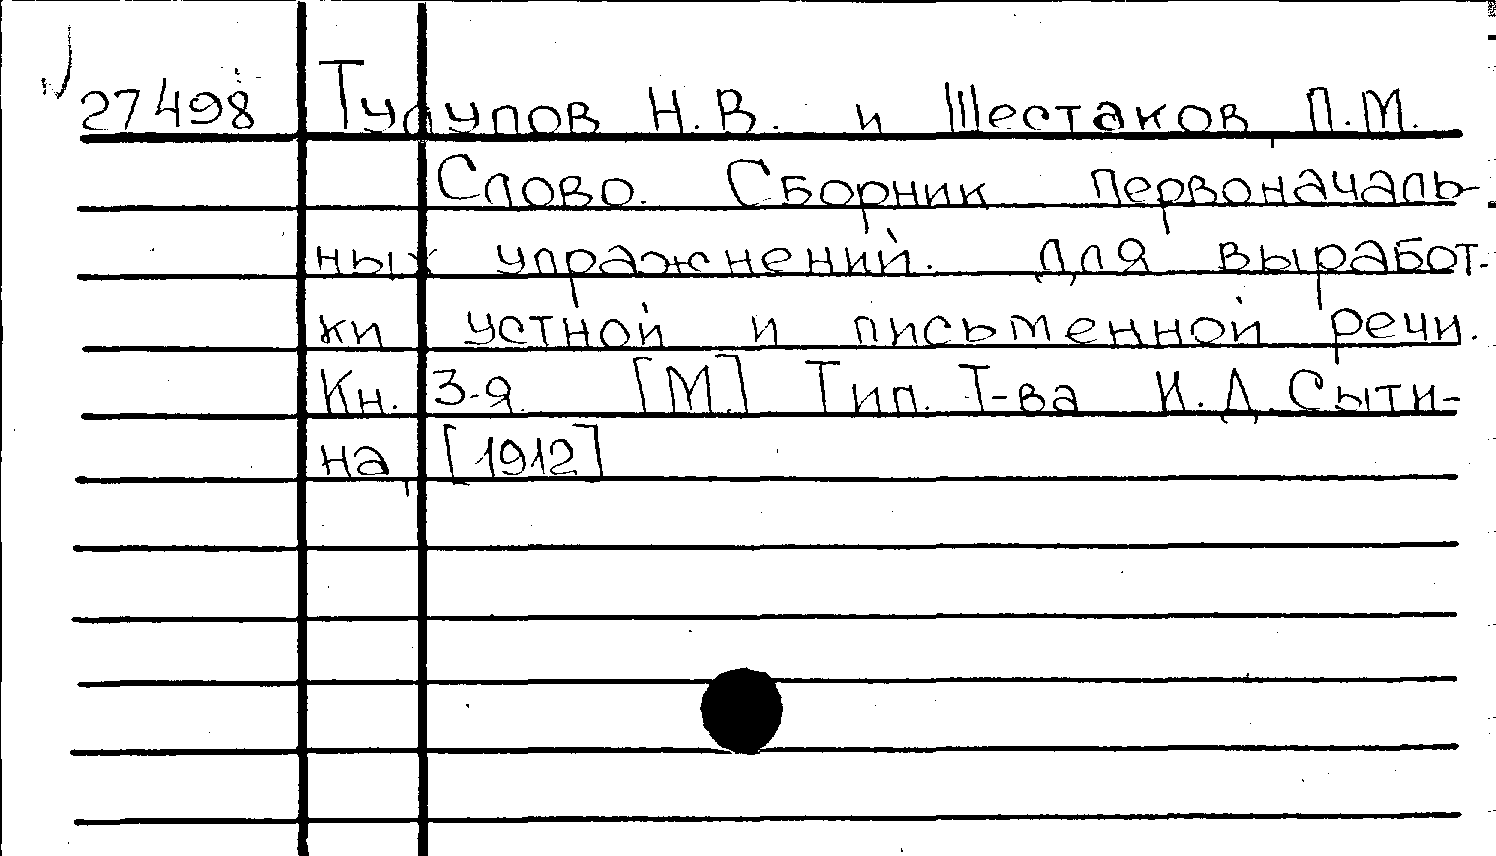 27498 Тулупов Н.В. и Шестаков П.М.
Слово. Сборник первоначаль-
ных упражнений. для выработ-
ки устной и письменной речи.
Кн. 3-я [М.] Тип. Т-ва И.Д. Сыти-
на, [1912]